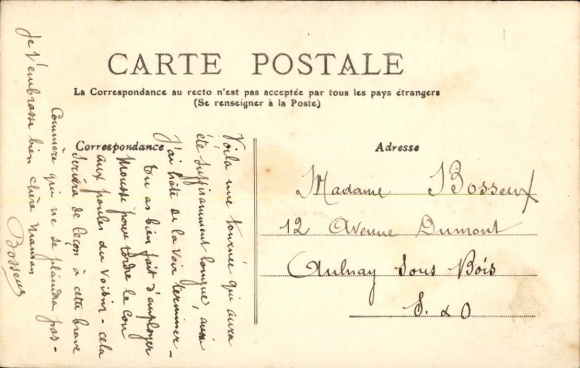 CARTE POSTALE
La Correspondance au recto n'est pas acceptée par tous les pays étrangers
(Se renseigner à la Poste)
Correspondance
Adresse
Voilà une tournée qui aura
été suffisamment longue, aussi
j'ai hâte de la voir terminer -
tu as bien fait d'employer
Mousse pour tordre le cou
aux poules du voisin - cela
servira de leçon à cette brave
Commère qui ne se plaindra pas -
Je t'embrasse bien chère Maman
Bosseux
Madame Bosseux
12 Avenue Dumont
Aulnay Sous Bois
S. & O